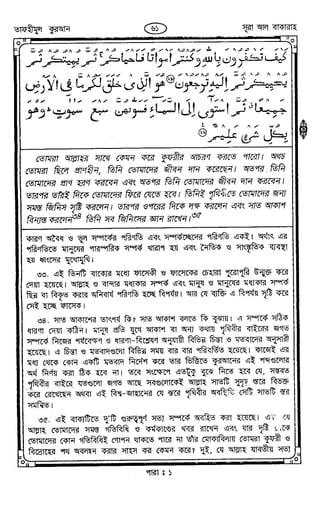 তাফহীমুল কুরআন
৬১
সূরা আল বাকারাহ
كَيْفَ تَكْفُرُونَ بِاللَّهِ وَكُنْتُمْ أَمْوَاتًا فَأَحْيَاكُمْ ثُمَّ يُمِيتُكُمْ ثُمَّ
يُحْيِيكُمْ ثُمَّ إِلَيْهِ تُرْجَعُونَ هُوَ الَّذِي خَلَقَ لَكُمْ مَا فِي الْأَرْضِ
جَمِيعًا ثُمَّ اسْتَوَىٰ إِلَى السَّمَاءِ فَسَوَّاهُنَّ سَبْعَ سَمَاوَاتٍ وَهُوَ
بِكُلِّ شَيْءٍ عَلِيمٌ
তোমরা আল্লাহর সাথে কেমন করে কুফরীর আচরণ করতে পারো। অথচ
তোমরা ছিলে প্রাণহীন, তিনি তোমাদের জীবন দান করেছেন। অতপর তিনি
তোমাদের প্রাণ হরণ করবেন এবং অতপর তিনি তোমাদের জীবন দান করবেন।
তারপর তাঁরই দিকে তোমাদের ফিরে যেতে হবে। তিনিই পৃথিবীতে তোমাদের জন্য
সমস্ত জিনিস সৃষ্টি করলেন। তারপর ওপরের দিকে লক্ষ করলেন এবং সাত আকাশ
বিন্যস্ত করলেন৩৪ তিনি সব জিনিসের জ্ঞান রাখেন।৩৫
কারণ অবৈধ ও ভুল সম্পর্কের পরিণতি এবং সম্পর্কচ্ছেদের পরিণতি একই। অর্থাৎ এর
পরিণতিতে মানুষের পারস্পরিক সম্পর্ক খারাপ হয় এবং নৈতিক ও সাংস্কৃতিক ব্যবস্থা
হয় ধ্বংসের মুখোমুখি।
৩৩. এই তিনটি বাক্যের মধ্যে ফাসেকী ও ফাসেকের চেহারা পুরোপুরি উন্মুক্ত করে
দেয়া হয়েছে। আল্লাহ ও বান্দার মধ্যকার সম্পর্ক এবং মানুষ ও মানুষের মধ্যকার সম্পর্ক
ছিন্ন বা বিকৃত করার অনিবার্য পরিণতি হচ্ছে বিপর্যয়। আর যে ব্যক্তি এ বিপর্যয় সৃষ্টি করে
সেই হচ্ছে ফাসেক।
৩৪. সাত আকাশের তাৎপর্য কি? সাত আকাশ বলতে কি বুঝায়? এ সম্পর্কে সঠিক
ধারণা দেয়া কঠিন। মানুষ প্রতি যুগে আকাশ বা অন্য কথায় পৃথিবীর বাইরের জগত
সম্পর্কে নিজের পর্যবেক্ষণ ও ধারণা-বিশ্লেষণ অনুযায়ী বিভিন্ন চিন্তা ও মতবাদের অনুসারী
হয়েছে। এ চিন্তা ও মতবাদগুলো বিভিন্ন সময় বার বার পরিবর্তিত হয়েছে। কাজেই এর
মধ্য থেকে কোন একটি মতবাদ নির্দেশ করে তার ভিত্তিতে কুরআনের এই শব্দগুলোর
অর্থ নির্ণয় করা ঠিক হবে না। তবে সংক্ষেপে এতটুকু বুঝে নিতে হবে যে, সম্ভবত
পৃথিবীর বাইরে যতগুলো জগত আছে সবগুলোকেই আল্লাহ সাতটি সুদৃঢ় স্তরে বিভক্ত
করে রেখেছেন অথবা এই বিশ্ব-জাহানের যে স্তরে পৃথিবীর অবস্থিতি সেটি সাতটি স্তর
সমন্বিত।
৩৫. এই বাক্যটিতে দু'টি গুরুত্বপূর্ণ সত্য সম্পর্কে অবহিত করা হয়েছে। এক, যে
আল্লাহ তোমাদের সমস্ত গতিবিধি ও কর্মকাণ্ডের খবর রাখেন এবং যার দৃষ্টি থেকে
তোমাদের কোন গতিবিধিই গোপন থাকতে পারে না তাঁর মোকাবিলায় তোমরা কুফরী ও
বিদ্রোহের পথ অবলম্বন করার সাহস কর কেমন করে? দুই, যে আল্লাহ যাবতীয় সত্য
পারা : ১